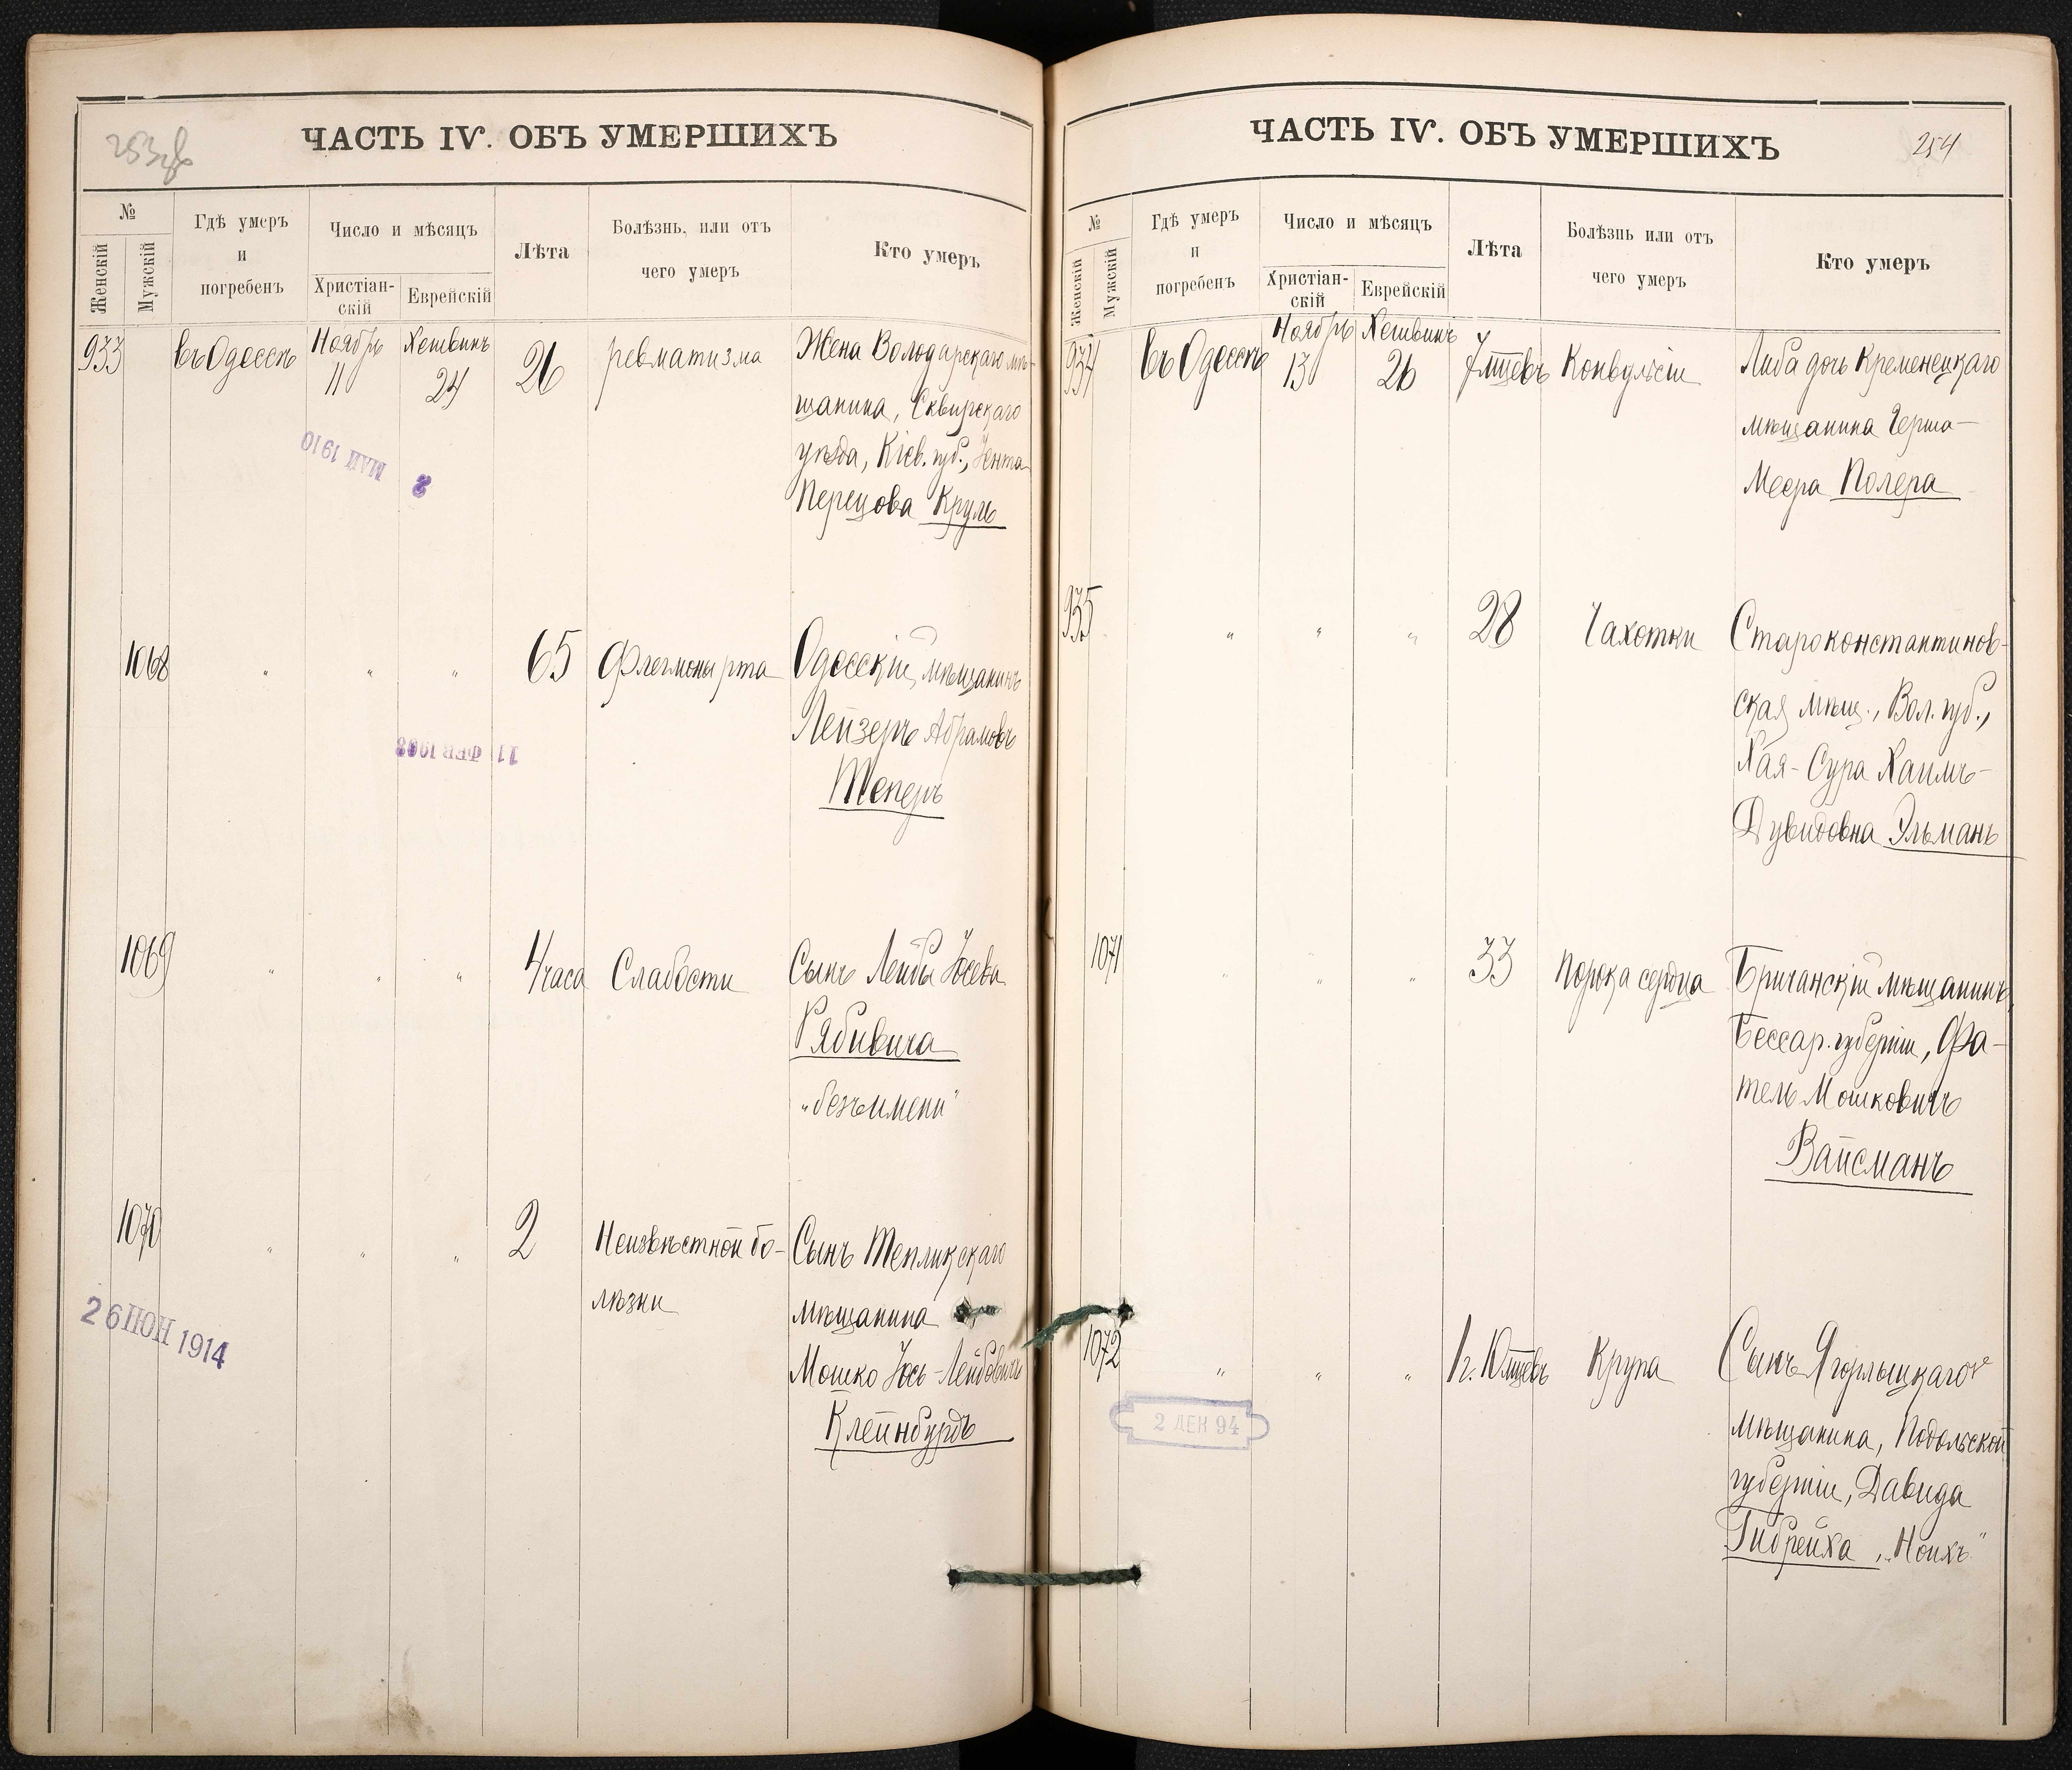 253об
ЧАСТЬ IV. ОБЪ УМЕРШИХЪ
№
Женскій
Мужскій
Гдѣ умеръ
и
погребенъ
Число и мѣсяцъ
Христіан-
скій
Еврейскій
Лѣта
Болѣзнь, или отъ
чего умеръ
Кто умеръ
933 въ Одессѣ Ноябрь 11 Хешвинъ 24 26 ревматизма Жена Володарскаго мѣ-
щанина, Сквирскаго
уѣзда, Кіев. губ., Гента
Перецова Круль
8 МАЙ 1910
1068 " " " 65 Флегмоны рта Одесскій мѣщанинъ
Лейзеръ Абрамовъ
Теперъ
11 ФЕВ 1908
1069 " " " 4 часа Слабости Сынъ Лейбы Іосева
Рябивича
"безъ имени"
1070 " " " 2 Неизвѣстной бо- Сынъ Тепликскаго
лѣзни мѣщанина
Мошко Іось-Лейбовичъ
Клейнбурдъ
26 ІЮН 1914
ЧАСТЬ IV. ОБЪ УМЕРШИХЪ
254
№
Женскій
Мужскій
Гдѣ умеръ
и
погребенъ
Число и мѣсяцъ
Христіан-
скій
Еврейскій
Лѣта
Болѣзнь или отъ
чего умеръ
Кто умеръ
934 въ Одессѣ Ноябрь 13 Хешвинъ 26 7 мѣцевъ Конвульсіи Либа дочь Кременецкаго
мѣщанина Герша-
Меера Полера
935 " " " 28 Чахотки Староконстантинов-
ская мѣщ., Вол. губ.,
Хая-Сура Хаимъ-
Дувидовна Эльманъ
1071 " " " 33 порока сердца Бричанскій мѣщанинъ,
Бессар. губерніи, Фа-
тель Мошковичъ
Вайсманъ
1072 " " " 1 г. 10 мцевъ Крупа Сынъ Ягорлыцкаго
мѣщанина, Подольской
губерніи, Давида
Гибрейха, "Ноихъ"
2 ДЕК 94